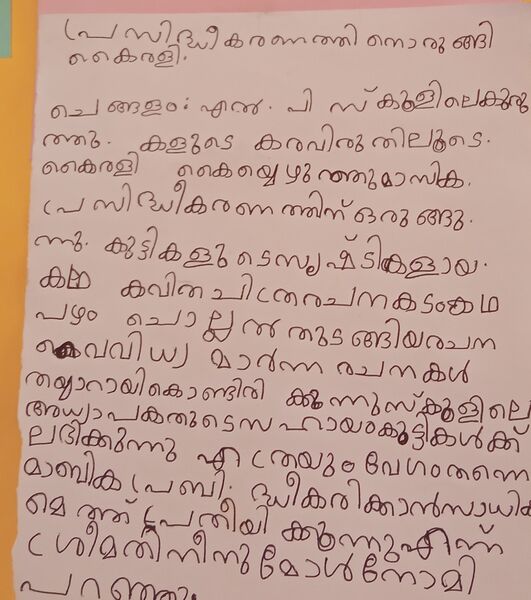 പ്രസിദ്ധീകരണത്തിനൊരുങ്ങി
കൈരളി.
ചെങ്ങളം: എൽ. പി സ്കൂളിലെകുരു
ത്തു. കളുടെ കരവിരുതിലൂടെ.
കൈരളി കൈയ്യെഴുത്തുമാസിക.
പ്രസിദ്ധീകരണത്തിന് ഒരുങ്ങു.
ന്നു. കുട്ടികളുടെസൃഷ്ടികളായ.
കഥ കവിത ചിത്രരചനകടംകഥ
പഴം ചൊല്ലൽ തുടങ്ങിയരചന
വൈവിധ്യ മാർന്ന രചനകൾ
തയ്യാറായികൊണ്ടിരി ക്കുന്നുസ്കൂളിലെ
അധ്യാപകരുടെസഹായംകുട്ടികൾക്ക്
ലഭിക്കുന്നു എത്രയും വേഗംതന്നെ
മാബിക പ്രബി. ദ്ധീകരിക്കാൻസാധിക്
മെത്ത് പ്രതീയി ക്കുന്നുഎന്ന്
ശ്രീമതിനീനുമോൾനോമി
പറഞ്ഞു.